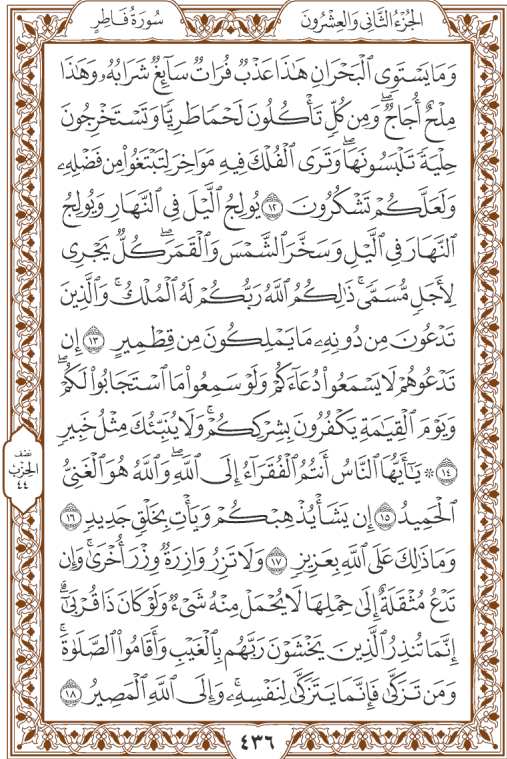 الجُزْءُ الثَّانِي وَالعِشْرُونَ
سُورَةُ فَاطِرٍ
وَمَا يَسْتَوِي ٱلْبَحْرَانِ هَٰذَا عَذْبٌ فُرَاتٌ سَآئِغٌ شَرَابُهُۥ وَهَٰذَا
مِلْحٌ أُجَاجٌۖ وَمِن كُلٍّ تَأْكُلُونَ لَحْمًا طَرِيًّا وَتَسْتَخْرِجُونَ
حِلْيَةً تَلْبَسُونَهَاۖ وَتَرَى ٱلْفُلْكَ فِيهِ مَوَاخِرَ لِتَبْتَغُوا۟ مِن فَضْلِهِۦ
وَلَعَلَّكُمْ تَشْكُرُونَ ١٢ يُولِجُ ٱلَّيْلَ فِي ٱلنَّهَارِ وَيُولِجُ
ٱلنَّهَارَ فِي ٱلَّيْلِ وَسَخَّرَ ٱلشَّمْسَ وَٱلْقَمَرَۖ كُلٌّ يَجْرِي
لِأَجَلٍ مُّسَمًّىۚ ذَٰلِكُمُ ٱللَّهُ رَبُّكُمْ لَهُ ٱلْمُلْكُۚ وَٱلَّذِينَ
تَدْعُونَ مِن دُونِهِۦ مَا يَمْلِكُونَ مِن قِطْمِيرٍ ١٣ إِن
تَدْعُوهُمْ لَا يَسْمَعُوا۟ دُعَآءَكُمْ وَلَوْ سَمِعُوا۟ مَا ٱسْتَجَابُوا۟ لَكُمْۖ
وَيَوْمَ ٱلْقِيَٰمَةِ يَكْفُرُونَ بِشِرْكِكُمْۚ وَلَا يُنَبِّئُكَ مِثْلُ خَبِيرٍ
١٤ ۞ يَٰٓأَيُّهَا ٱلنَّاسُ أَنتُمُ ٱلْفُقَرَآءُ إِلَى ٱللَّهِۖ وَٱللَّهُ هُوَ ٱلْغَنِيُّ
ٱلْحَمِيدُ ١٥ إِن يَشَأْ يُذْهِبْكُمْ وَيَأْتِ بِخَلْقٍ جَدِيدٍ ١٦
وَمَا ذَٰلِكَ عَلَى ٱللَّهِ بِعَزِيزٍ ١٧ وَلَا تَزِرُ وَازِرَةٌ وِزْرَ أُخْرَىٰۚ وَإِن
تَدْعُ مُثْقَلَةٌ إِلَىٰ حِمْلِهَا لَا يُحْمَلْ مِنْهُ شَيْءٌ وَلَوْ كَانَ ذَا قُرْبَىٰٓۗ
إِنَّمَا تُنذِرُ ٱلَّذِينَ يَخْشَوْنَ رَبَّهُم بِٱلْغَيْبِ وَأَقَامُوا۟ ٱلصَّلَوٰةَۚ
وَمَن تَزَكَّىٰ فَإِنَّمَا يَتَزَكَّىٰ لِنَفْسِهِۦۚ وَإِلَى ٱللَّهِ ٱلْمَصِيرُ ١٨
نصف
الحزب
٤٤
٤٣٦